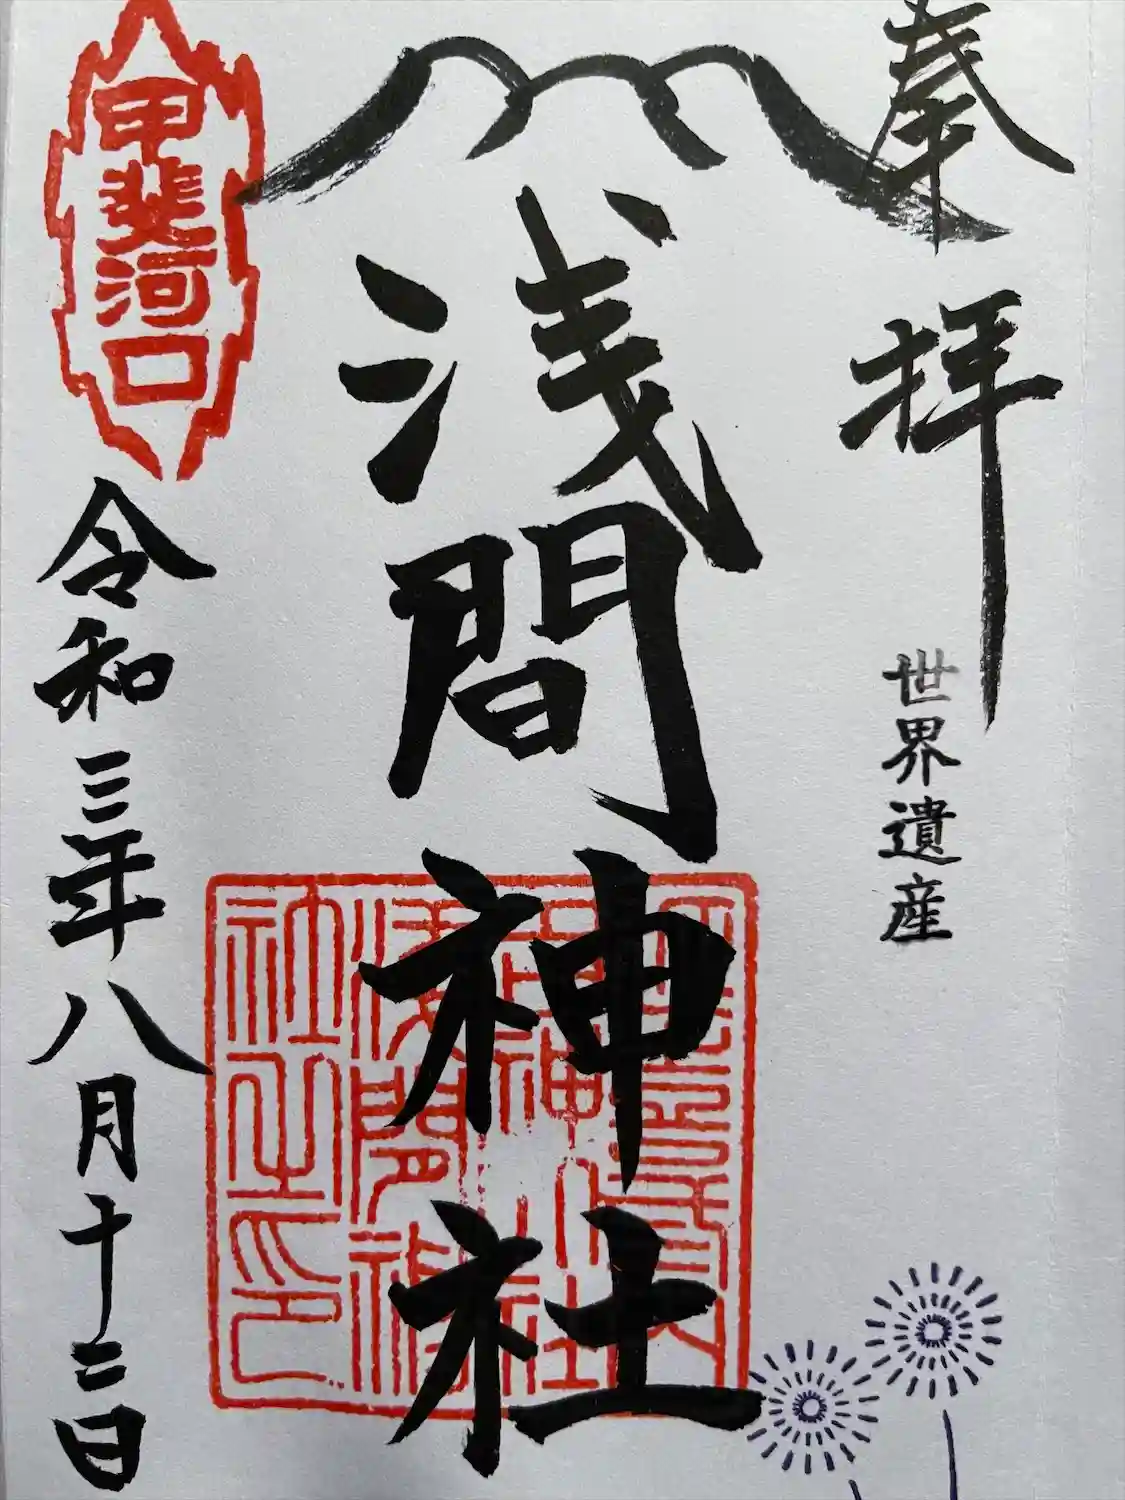 奉拝
世界遺産
浅間神社
甲斐河口
令和三年八月十二日